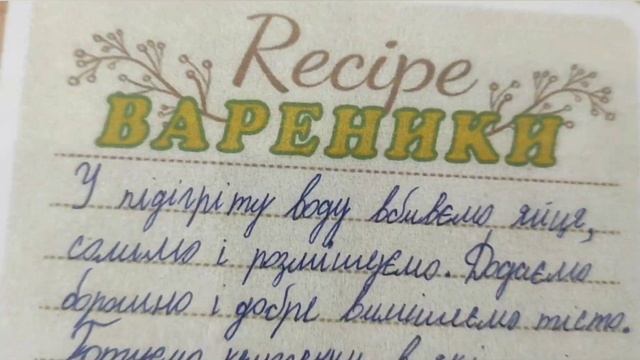 Recipe
ВАРЕНИКИ
У підігріту воду вбиваємо яйця,
солимо і розмішуємо. Додаємо
борошно і добре вимішуємо тісто.
Готуємо